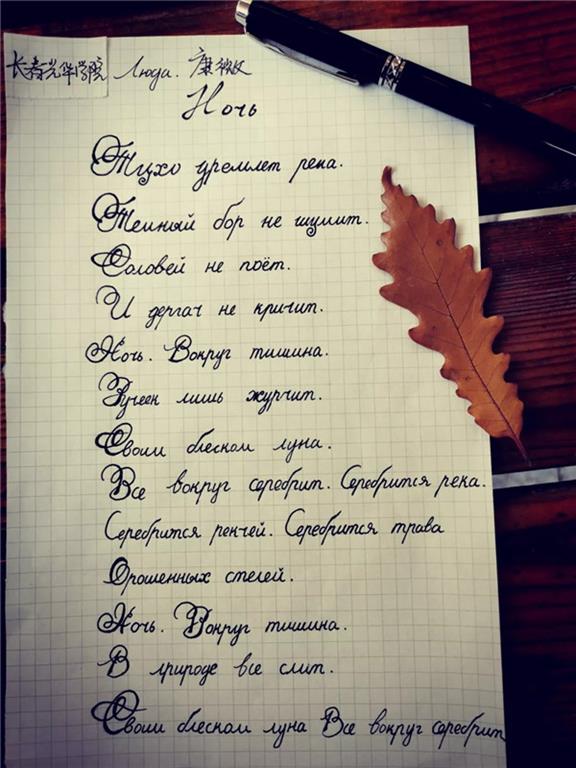 长春光华学院 Люда. 康薇薇
Ночь
Тихо уремлет река.
Темный бор не шумит.
Соловей не поёт.
И дергач не кричит.
Ночь. Вокруг тишина.
Ручеек лишь журчит.
Своим блеском луна.
Все вокруг серебрит. Серебрится река.
Серебрится ренчей. Серебрится трава
Орошенных степей.
Ночь. Вокруг тишина.
В природе все спит.
Своим блеском луна Все вокруг серебрит